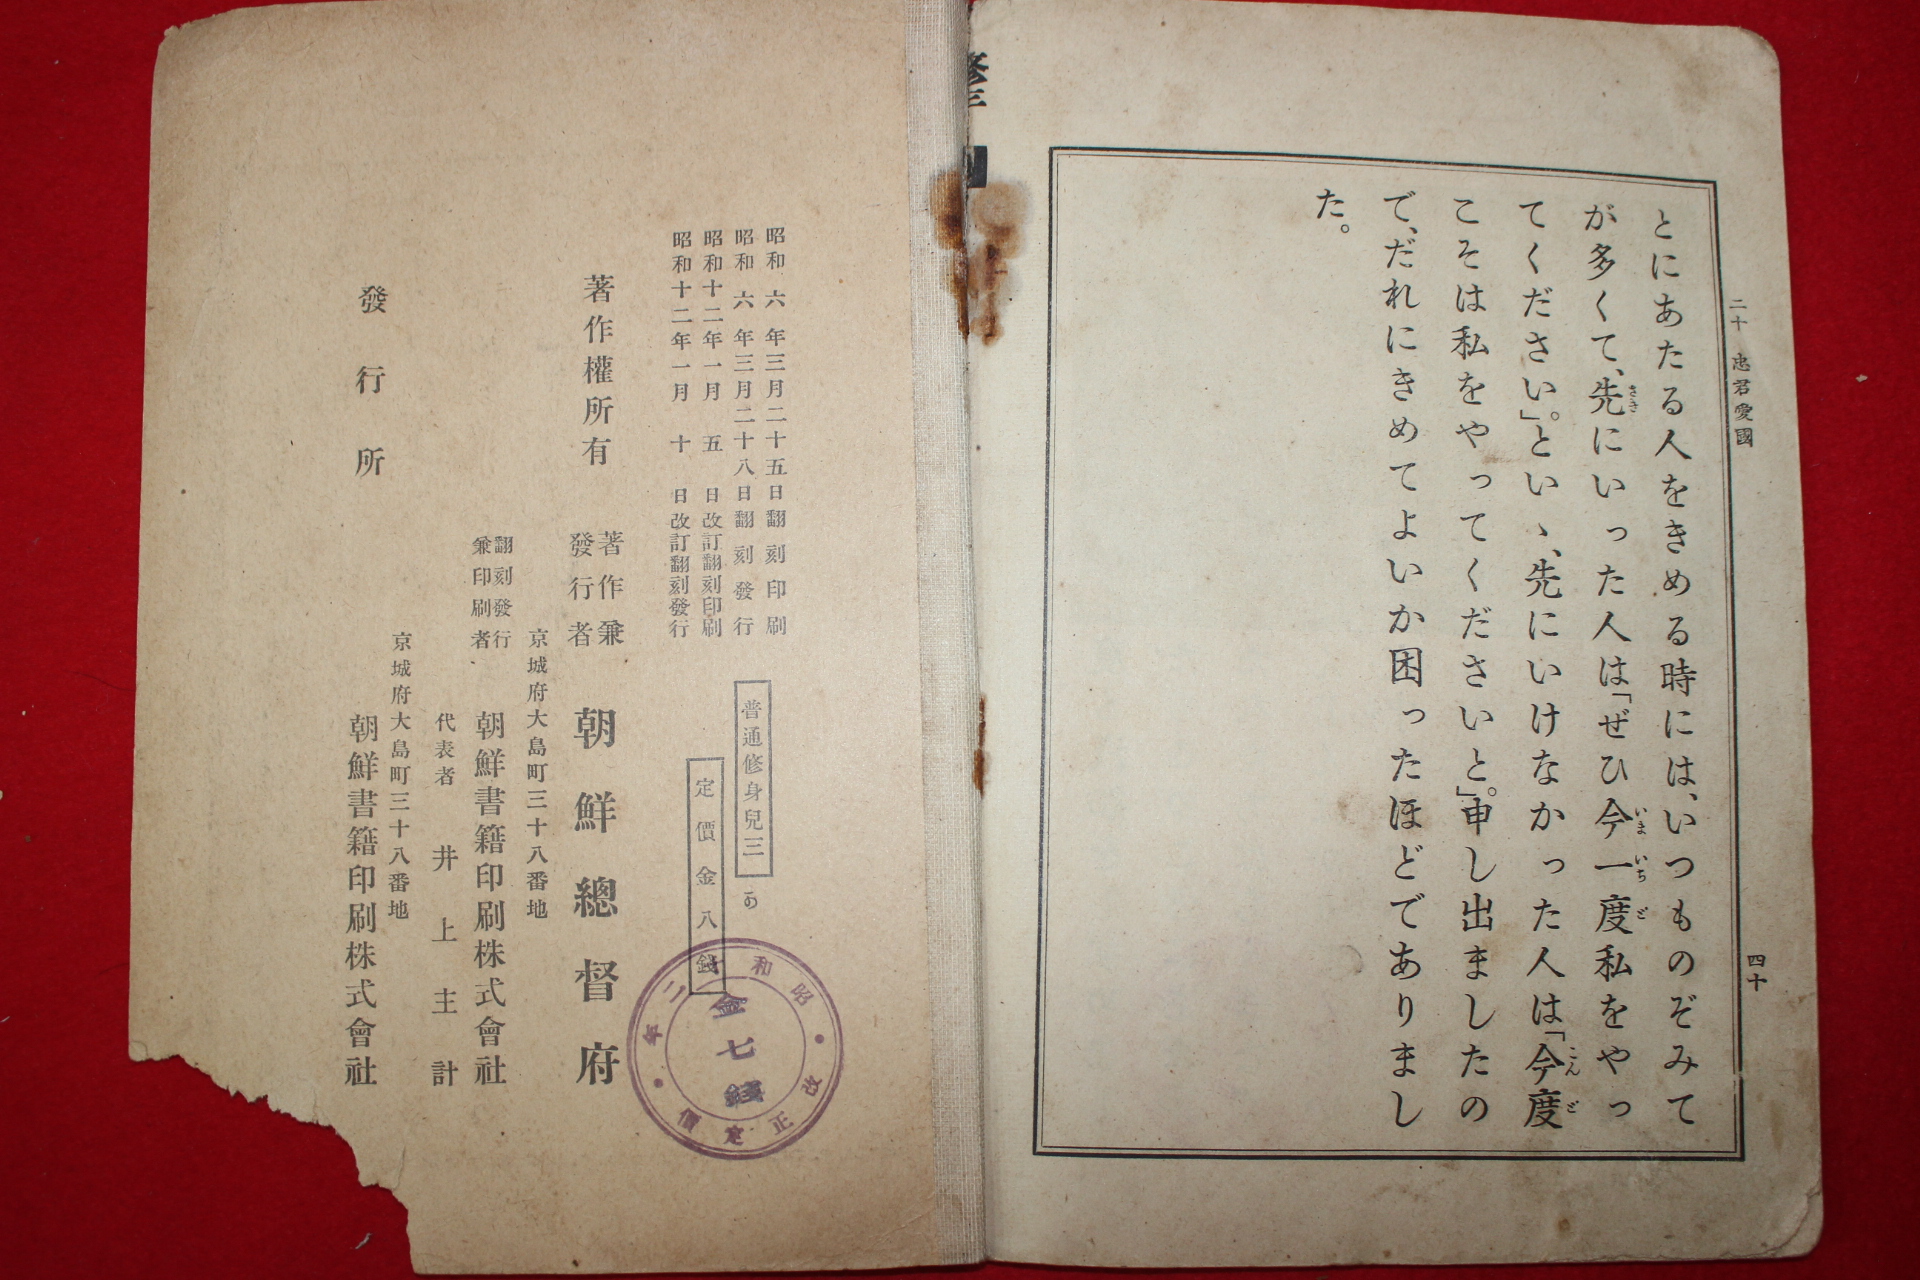 二十 忠君愛國
四十
とにあたる人をきめる時には、いつものぞみて
が多くて、先にいった人は「ぜひ今一度私をやっ
てくださいゝ。」といゝ、先にいけなかった人は「今度
こそは私をやってくださいと。」申し出ましたの
で、だれにきめてよいか困ったほどでありまし
た。
修三
昭和六年三月二十五日翻刻印刷
昭和六年三月二十八日翻刻發行
昭和十二年一月五日改訂翻刻印刷
昭和十二年一月十日改訂翻刻發行
普通修身兒三
の
定價金八錢
著作權所有
著作兼
發行者
朝鮮總督府
京城府大島町三十八番地
翻刻發行
兼印刷者
朝鮮書籍印刷株式會社
代表者 井上主計
京城府大島町三十八番地
發行所
朝鮮書籍印刷株式會社
昭和十二年
改正定價
金七錢